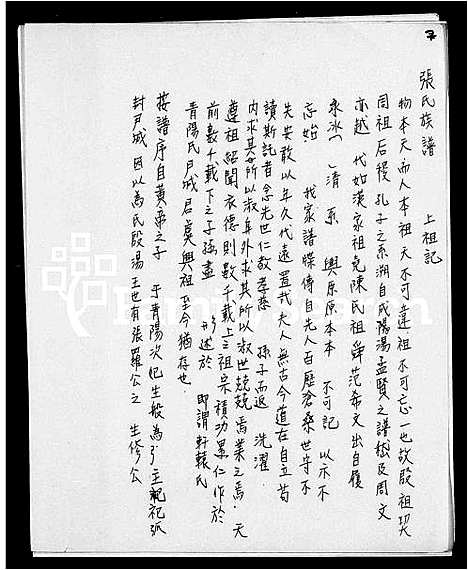 张氏族譜　　上祖記
物本天而人本祖天不可違祖不可忘一也故殷祖契
同祖后稷孔子之系溯自成湯孟賢之譜嵇及周文
亦越　代如漢家祖堯陳民祖舜范希文出自履
永冰　清　系　與原原本本　不可記　以示不
忘始　我家譜牒傳自先人百歷滄桑世守不
失安敢以年久代遠置哉夫人無古今道在自立苟
讀斯記者念先世仁敬孝慈　孫子而返　洗濯
内求其所以淑年外求其所以淑世兢兢焉業之焉天
遵祖紹聞衣德則數千載上之祖宗積功累仁作於
前數千載下之子孫盡　述於
青陽氏尸城君奠興祖至今猶存也　即謂軒轅氏
接譜序自黃帝之子　于青陽次妃生般為弓主祀弧
封尸城因以為氏殷湯王世有張羅公之　生修公